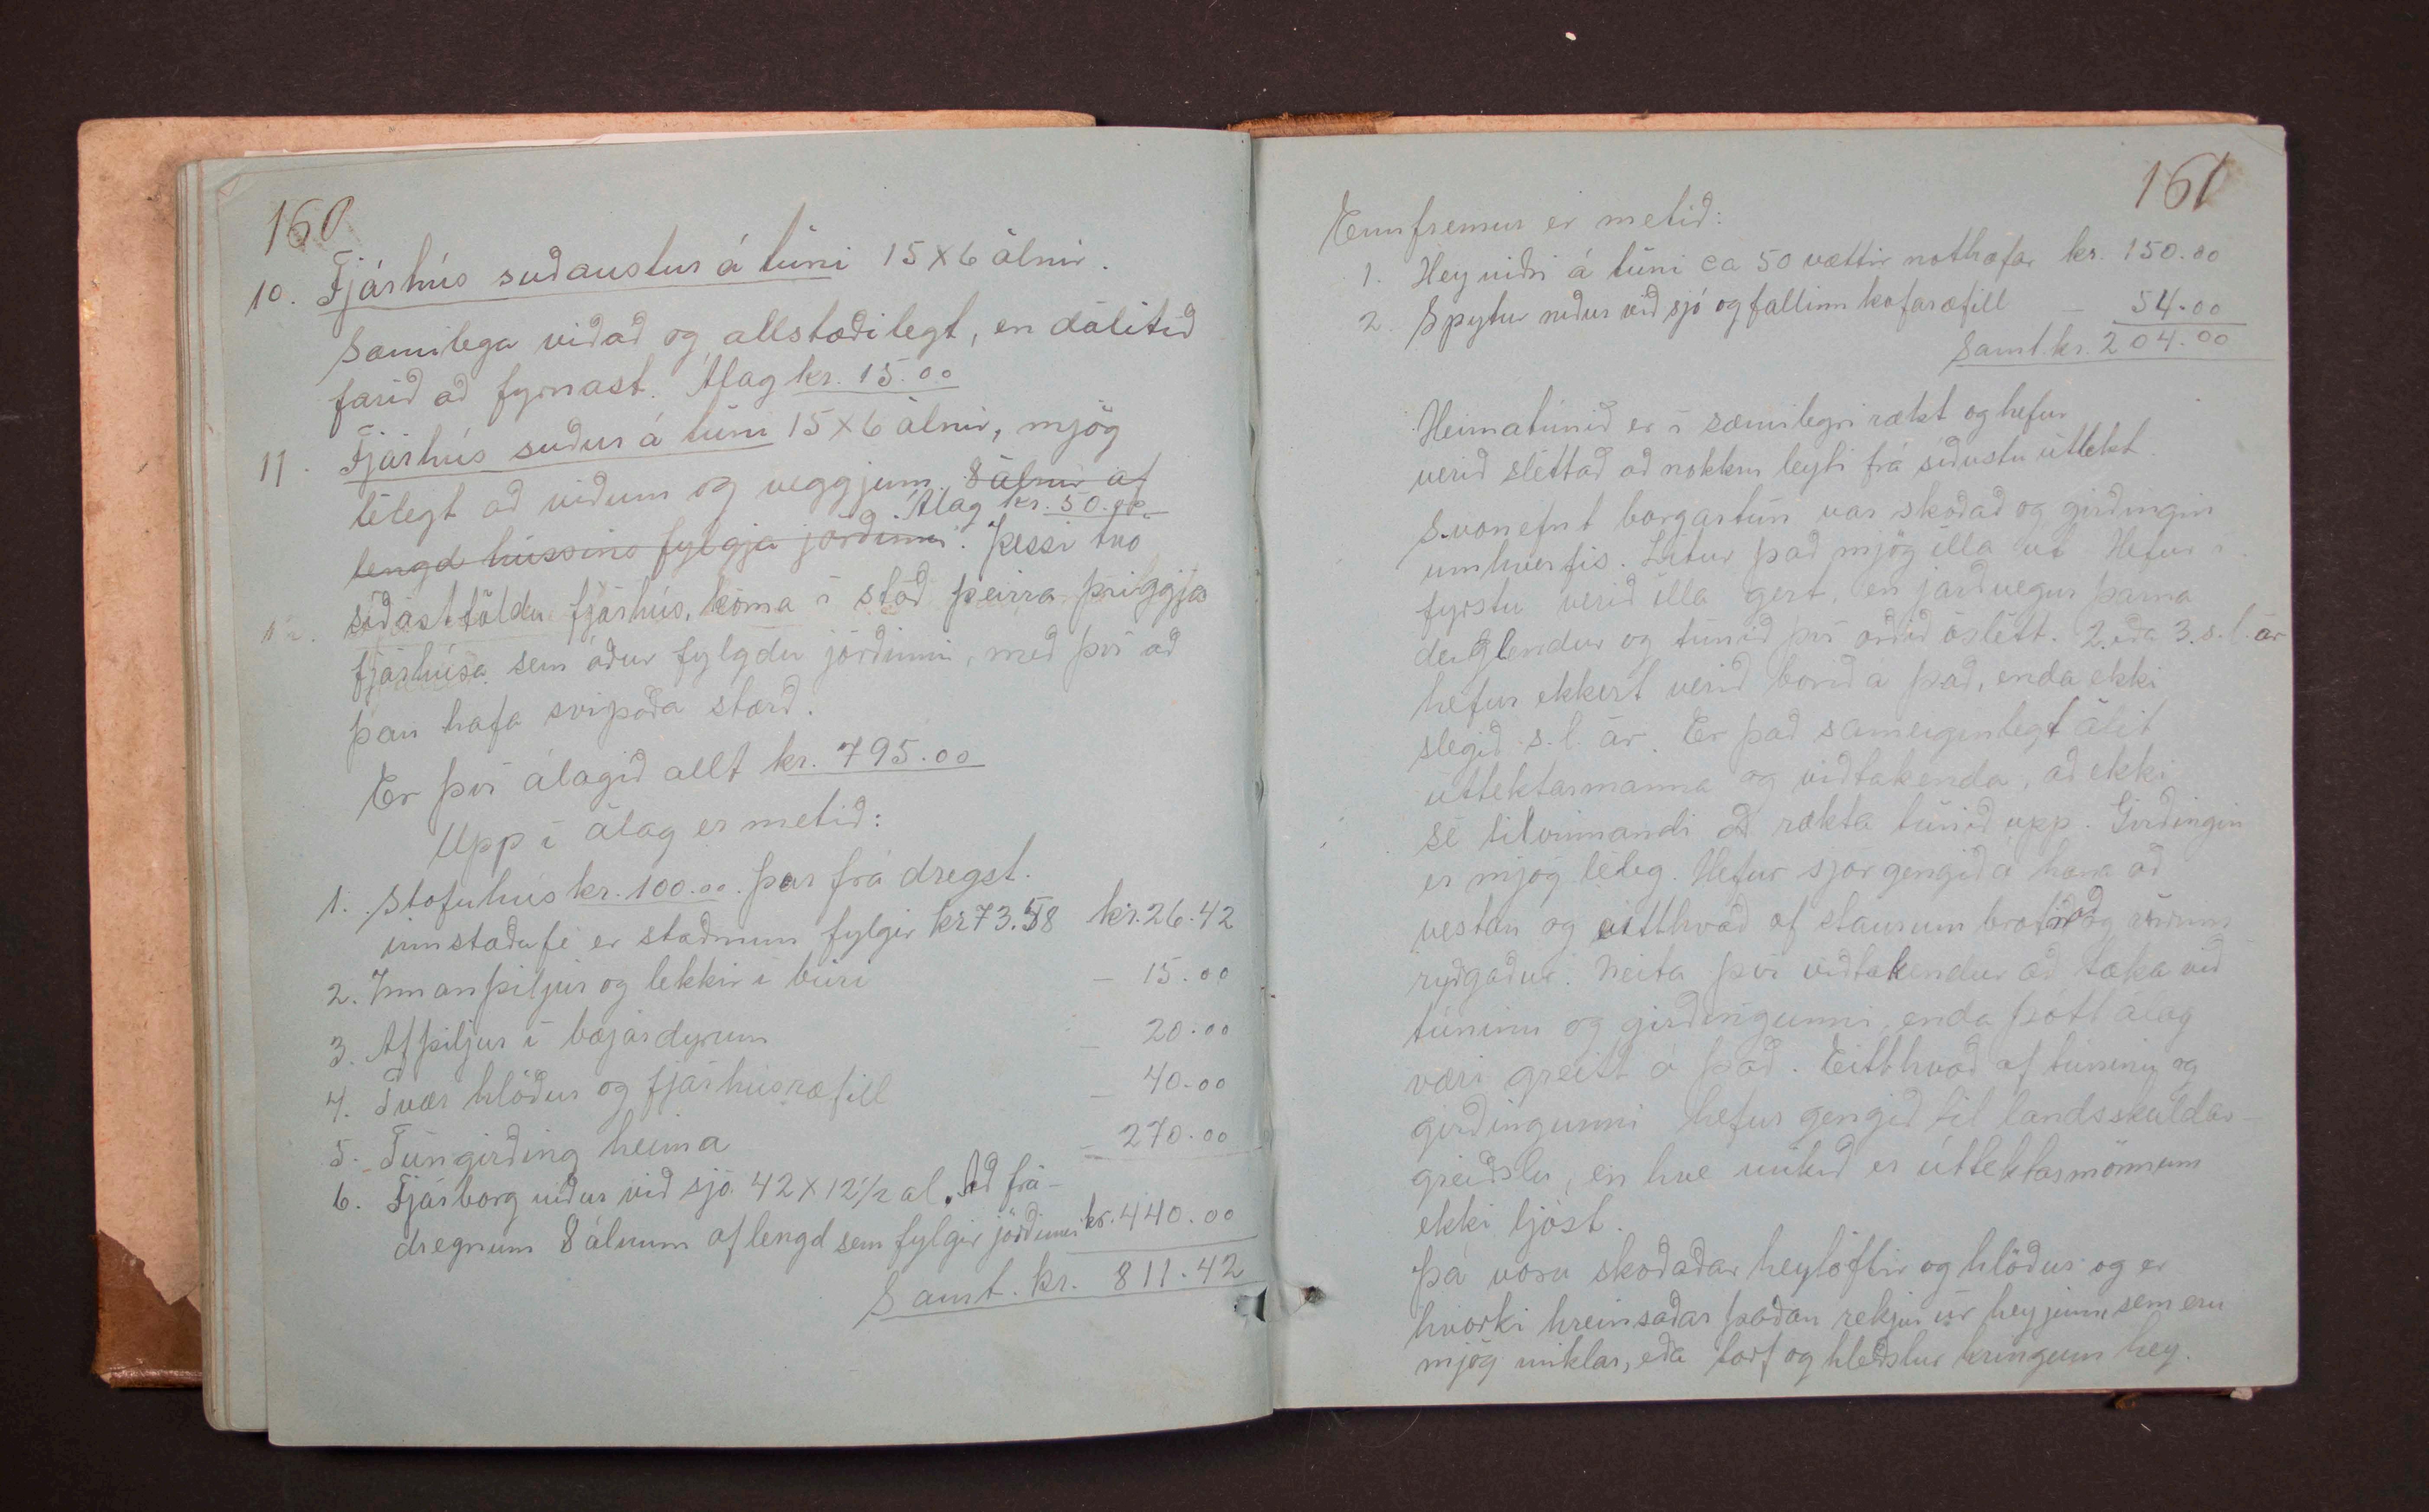 160
10. Fjárhús suðaustur á túni 15 x 6 álnir.
Sæmilega viðað og allstæðilegt, en dálítið
farið að fyrnast. Álag kr. 15.00
11. Fjárhús suður á túni 15 x 6 álnir, mjög
lélegt að viðum og veggjum. 8 álnir af
Álag kr. 50.00.
lengd hússins fylgja jörðinni. Þessi tvo
síðasttöldu fjárhús, koma í stað þeirra þriggja
fjárhúsa sem áður fylgdu jörðinni, með því að
þau hafa svipaða stærð.
Er því álagið allt kr. 795.00
Upp í álag er metið:
1. Stofuhús kr. 100.00. Þar frá dregst.
innstæðufé er staðnum fylgir kr 73.58 kr. 26.42
2. Innanþiljur og lekkir í búri – 15.00
3. Afþiljur í bæjardyrum – 20.00
4. Tvær hlöður og fjárhúsræfill – 40.00
5. Túngirðing heima – 270.00
6. Fjárborg niður við sjó 42 x 12 1/2 al. Að frá-
dregnum 8 álnum af lengd sem fylgir jörðinni kr. 440.00
Samt. kr. 811.42
161
Ennfremur er metið:
1. Hey niðri á túni ca 50 vættir nothæfar kr. 150.00
2. Spytur niður við sjó og fallinn kofaræfill – 54.00
Samt. kr. 204.00
Heimatúnið er í sæmilegri rækt og hefur
verið sléttað að nokkru leyti frá síðustu úttekt.
Svonefnt borgartún var skoðað og girðingin
umhverfis. Lítur það mjög illa út. Hefur í
fyrstu verið illa gert, en jarðvegur þarna
deiglendur og túnið því orðið óslétt. 2. eða 3. s.l. ár
hefur ekkert verið borið á það, enda ekki
slegið s.l. ár. Er það sameiginlegt álit
úttektarmanna og viðtakenda, að ekki
sé tilvinnandi að rækta túnið upp. Girðingin
er mjög léleg. Hefur sjór gengið á hana að
vestan og eitthvað af staurum brotnað og vírinn
ryðgaður. Neita því viðtakendur að taka við
túninu og girðingunni, enda þótt álag
væri greitt á það. Eitthvað af túninu og
girðingunni hefur gengið til landsskuldar-
greiðslu, en hve mikið er úttektarmönnum
ekki ljóst.
Þá voru skoðaðar heytóftir og hlöður og er
hvorki hreinsaðar þaðan rekjur úr heyjum, sem eru
mjög miklar, eða torf og hleðslur kringum hey.